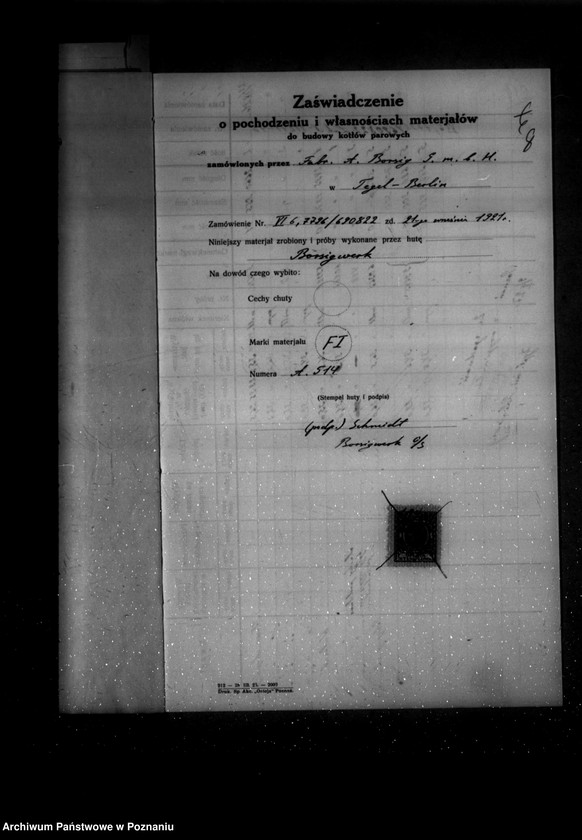 8
Zaświadczenie
o pochodzeniu i własnościach materjałów
do budowy kotłów parowych
zamówionych przez Fabr. A. Borsig G. m. b. H.
w Tegel-Berlin
Zamówienie Nr. VI 6, 7726/690822 zd. 21go wrześni 1921r.
Niniejszy materjał zrobiony i próby wykonane przez hutę
Borsigwerk
Na dowód czego wybito:
Cechy chuty
Marki materjału FI
Numera A. 514
(Stempel huty i podpis)
(podp.) Schmidt
Borsigwerk O/S
Druk. Sp. Akc. „Ostoja" Poznań.
Archiwum Państwowe w Poznaniu